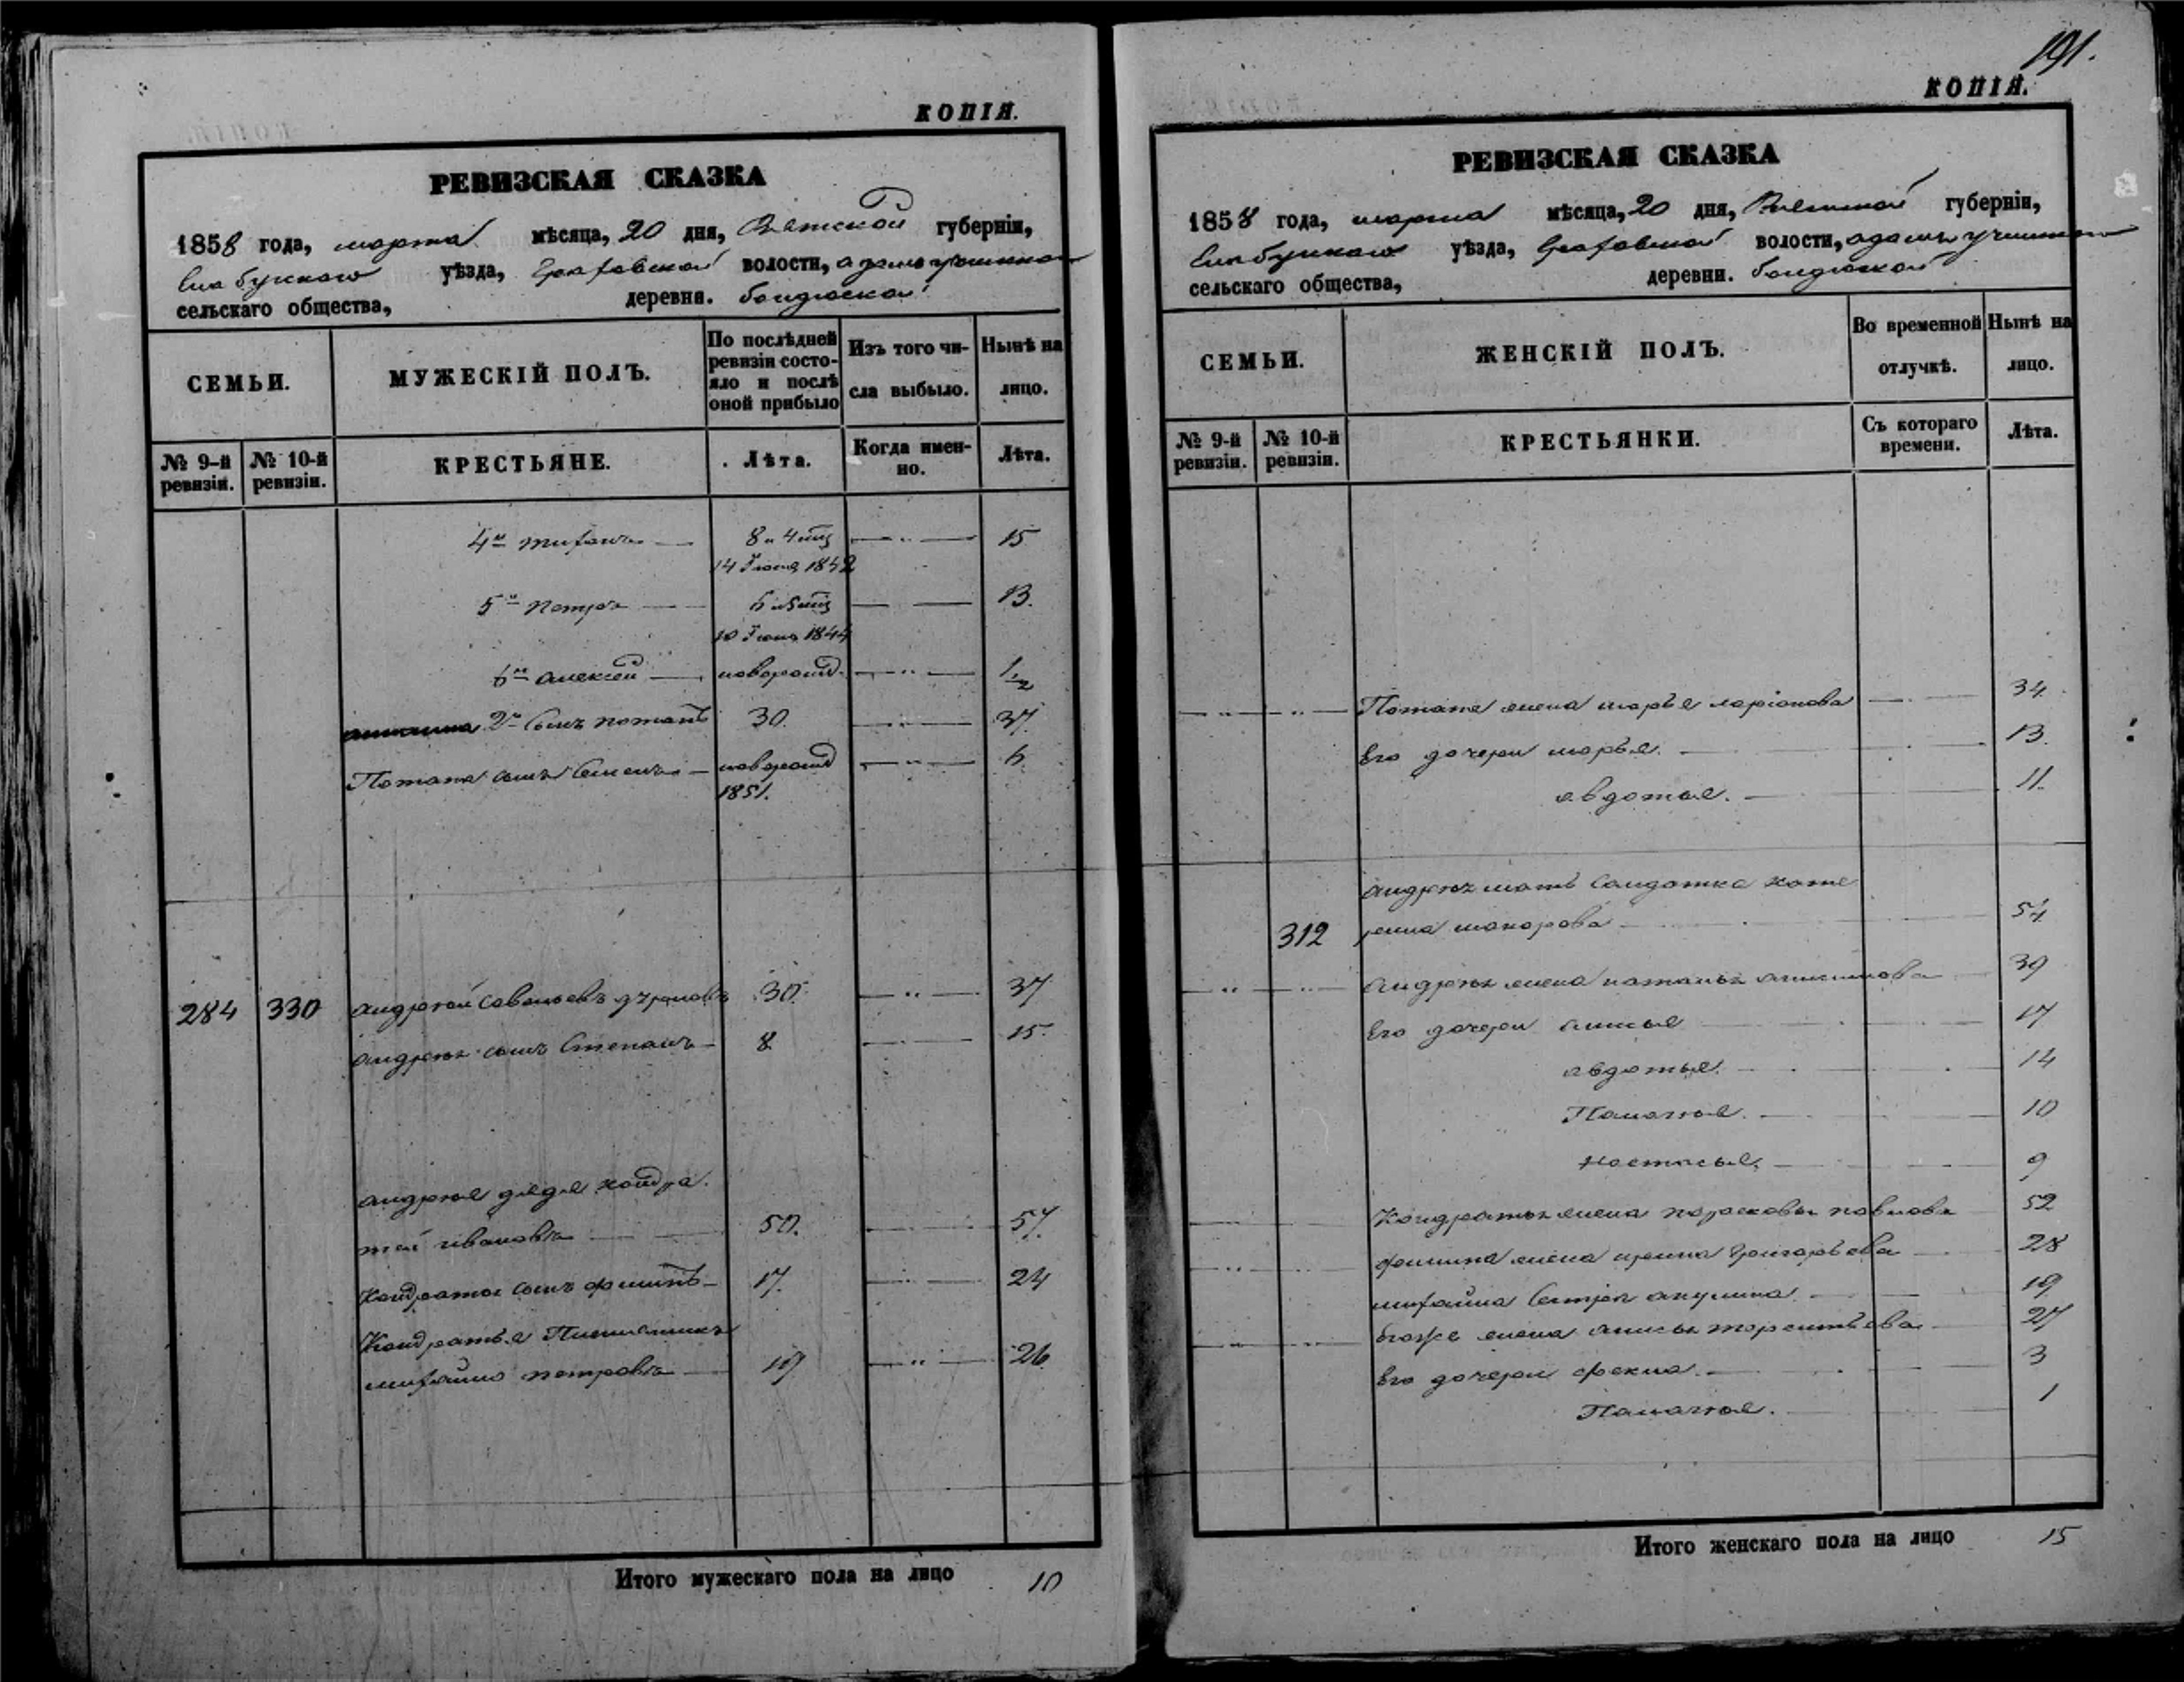 КОПІЯ.
РЕВИЗСКАЯ СКАЗКА
1858 года, марта мѣсяца, 20 дня, Вятской губерніи,
Елабужскаго уѣзда, Граховской волости,
сельскаго общества, деревни. бондюской
СЕМЬИ.
МУЖЕСКІЙ ПОЛЪ.
По послѣдней ревизіи состояло и послѣ оной прибыло
Изъ того числа выбыло.
Нынѣ на лицо.
№ 9-й ревизіи.
№ 10-й ревизіи.
КРЕСТЬЯНЕ.
Лѣта.
Когда именно.
Лѣта.
4й 8 и 4 мц 15
14 1842
5й Петръ 13.
10 1844
6й алексей новорожд. 1/2
2й сынъ потапъ 30. 37
Потапа сынъ Семенъ новорожд 6
1851.
284 330 андрей савельевъ 30. 37
андрея сынъ Степанъ 8 15.
андрея дядя кондра
тей ивановъ 50. 57.
Кондратья сынъ филипъ 17. 24
Кондратья Племянникъ
михайло петровъ 19 26
Итого мужескаго пола на лицо 10
191.
КОПІЯ.
РЕВИЗСКАЯ СКАЗКА
1858 года, марта мѣсяца, 20 дня, Вятской губерніи,
Елабужскаго уѣзда, Граховской волости,
сельскаго общества, деревни. бондюской
СЕМЬИ.
ЖЕНСКІЙ ПОЛЪ.
Во временной отлучкѣ.
Нынѣ на лицо.
№ 9-й ревизіи.
№ 10-й ревизіи.
КРЕСТЬЯНКИ.
Съ котораго времени.
Лѣта.
Потапа жена марья ларіонова 34.
Его дочери марья. 13.
авдотья. 11.
андрея мать солдатка кате
312 рина макарова 54
андрея жена наталья анисимова 39
Его дочери анисья 17
авдотья. 14
Палагея. 10
настасья. 9
Кондратья жена парасковья павлова 52
филипа жена ирина Григорьева 28
михайла Сестра акулина 19
егоже жена анисья терентьева 27
Его дочери фекла. 3
Палагея. 1
Итого женскаго пола на лицо 15